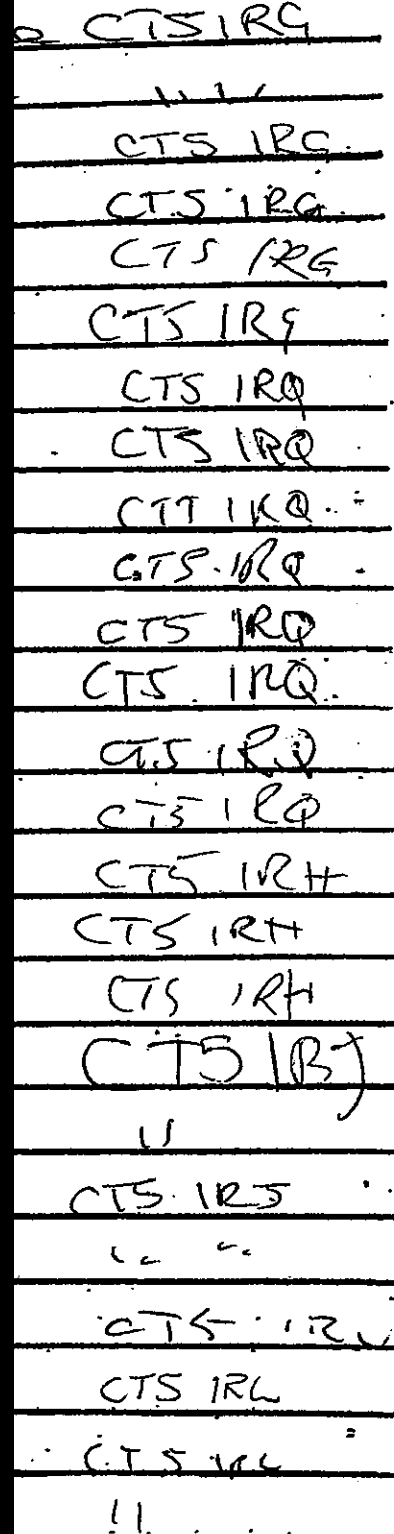 CT5 1RG
" "
CT5 1RG
CT5 1RG
CT5 1RG
CT5 1RG
CT5 1RQ
CT5 1RQ
CTT 1RQ
CT5 1RQ
CT5 1RQ
CT5 1RQ
CT5 1RQ
CT5 1RQ
CT5 1RH
CT5 1RH
CT5 1RH
CT5 1RJ
"
CT5 1RJ
" "
CT5
CT5 1RL
CT5 1RL
"